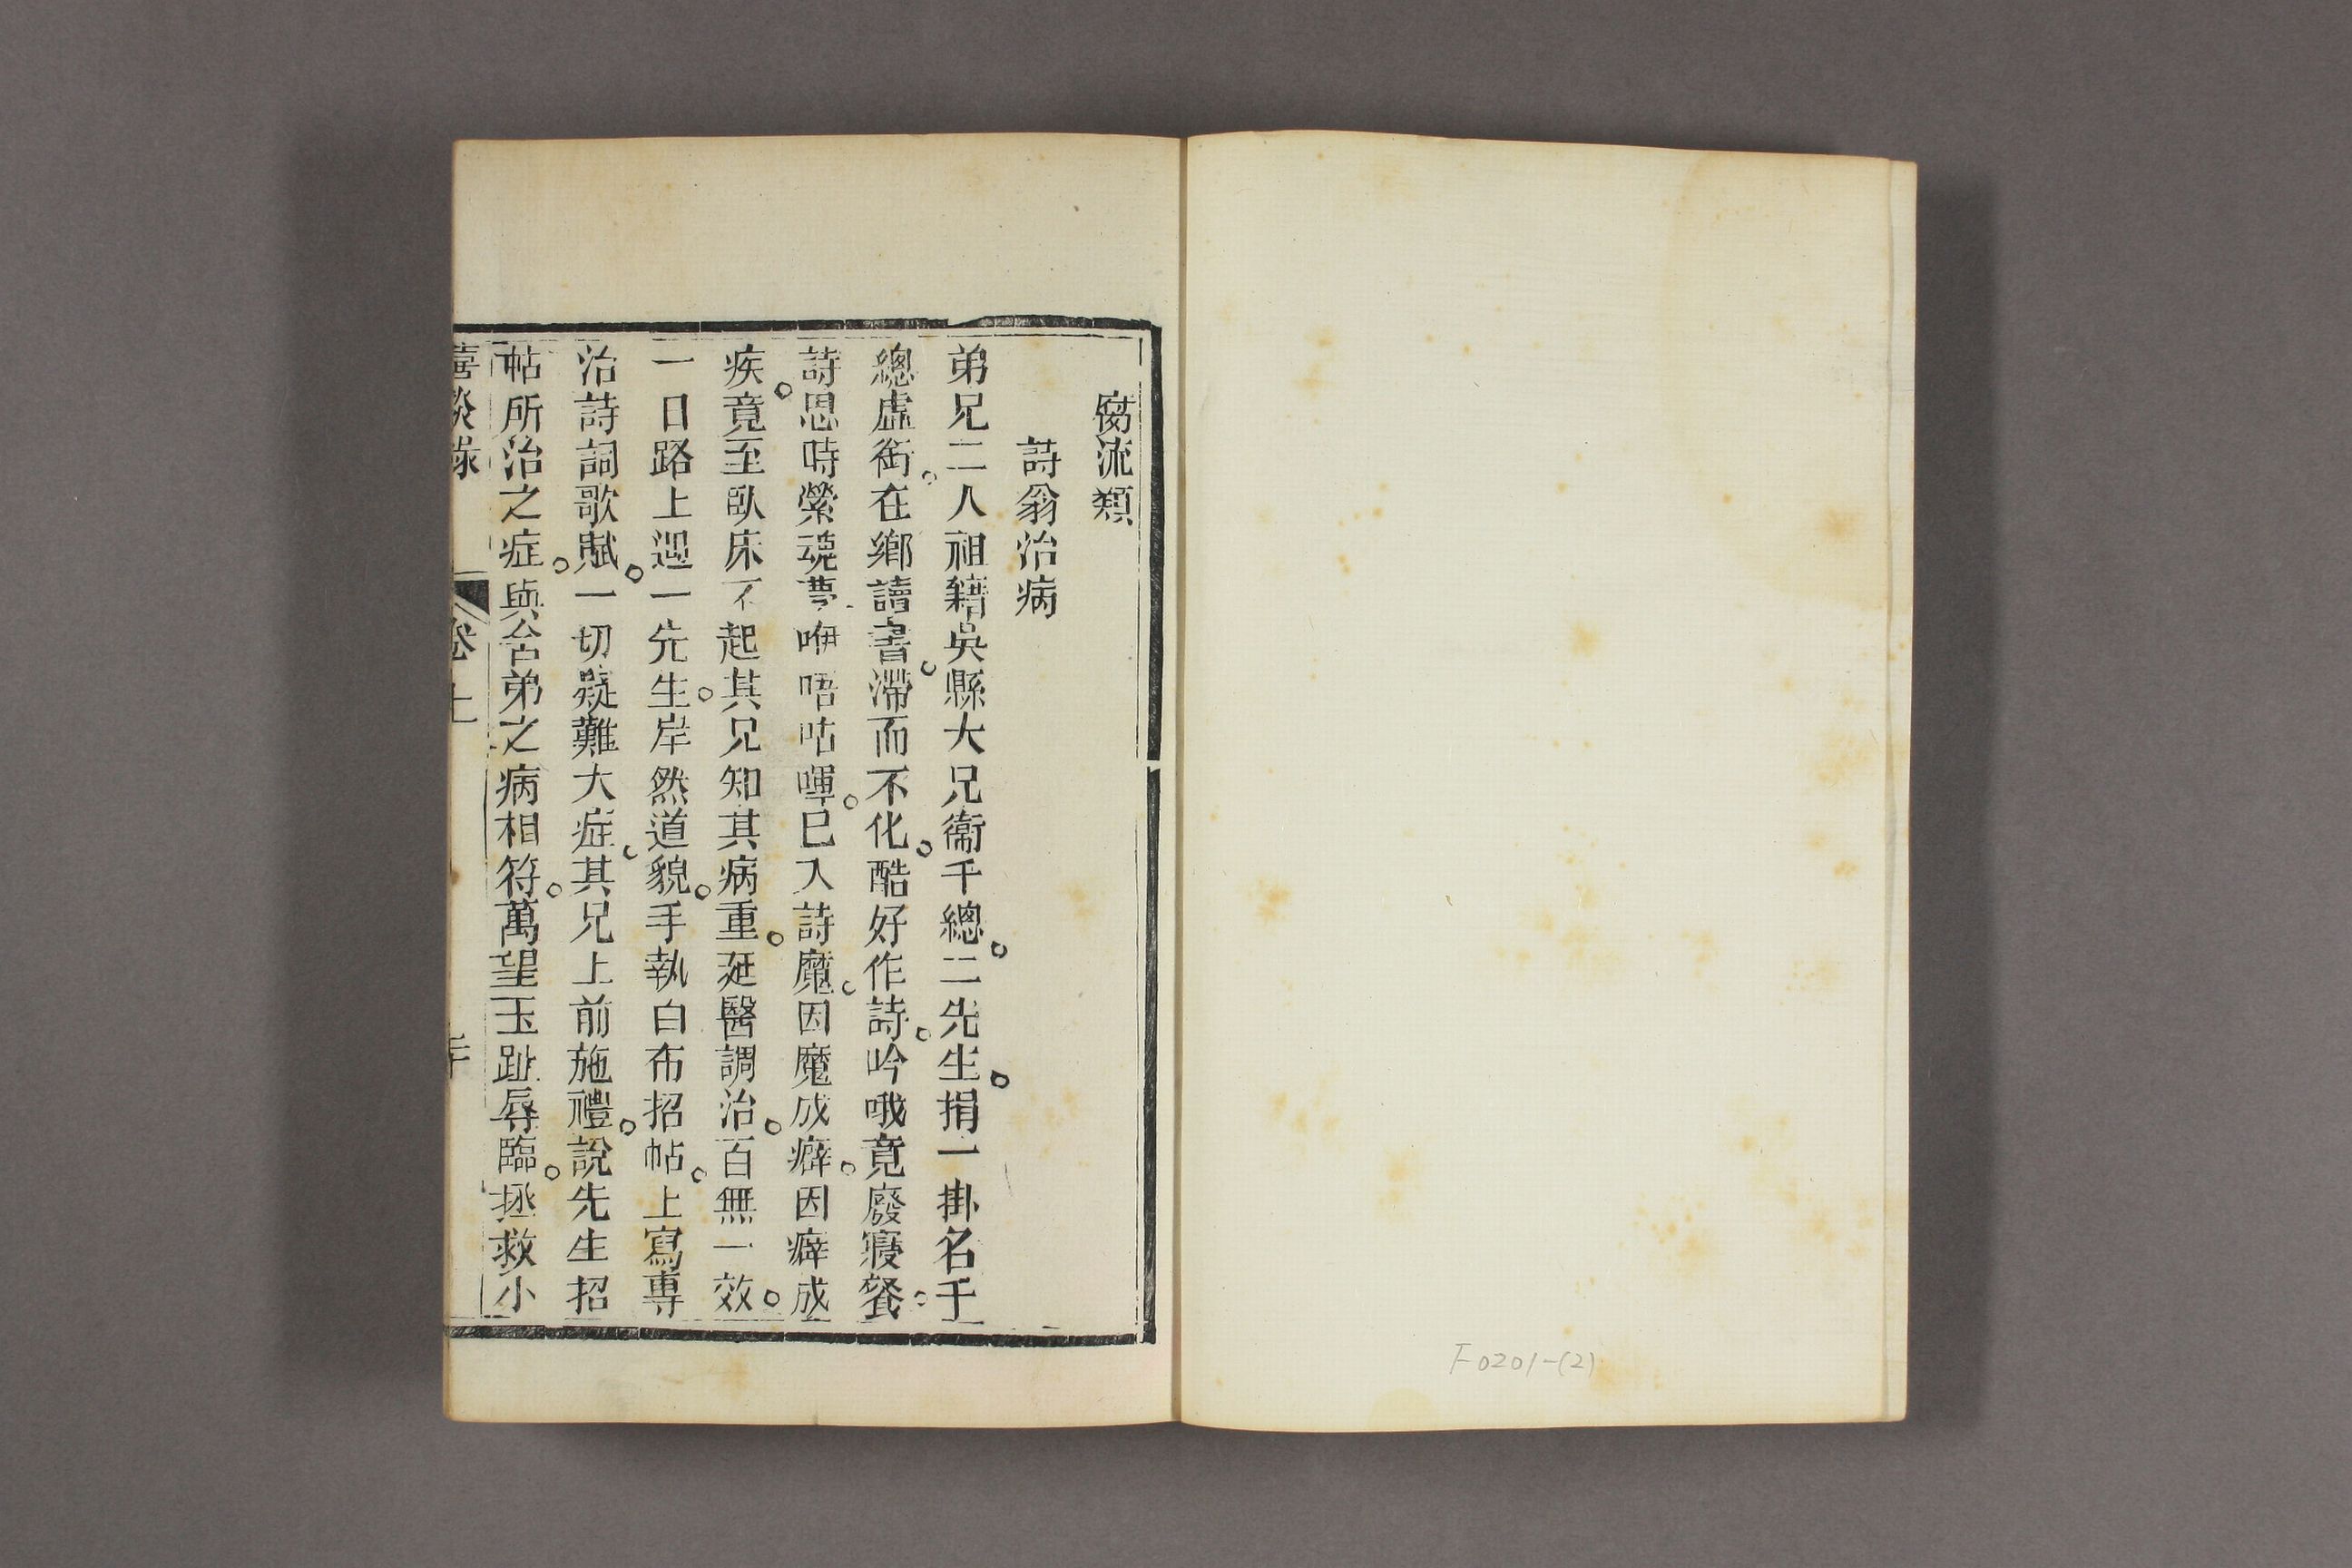 腐流類
詩翁治病
弟兄二人祖籍吳縣大兄衞千總。二先生。捐一掛名千
總虛銜。在鄉讀書。滯而不化。酷好作詩。吟哦竟廢寢餐。
詩思時縈魂夢咿唔咕嗶。已入詩魔。因魔成癖。因癖成
疾。竟至臥床不起其兄知其病重。延醫調治。百無一效。
一日路上遇一先生。岸然道貌。手執白布招帖。上寫專
治詩詞歌賦。一切疑難大症。其兄上前施禮。說先生招
帖所治之症。與舍弟之病相符。萬望玉趾辱臨。拯救小
卷上
F0201-(2)